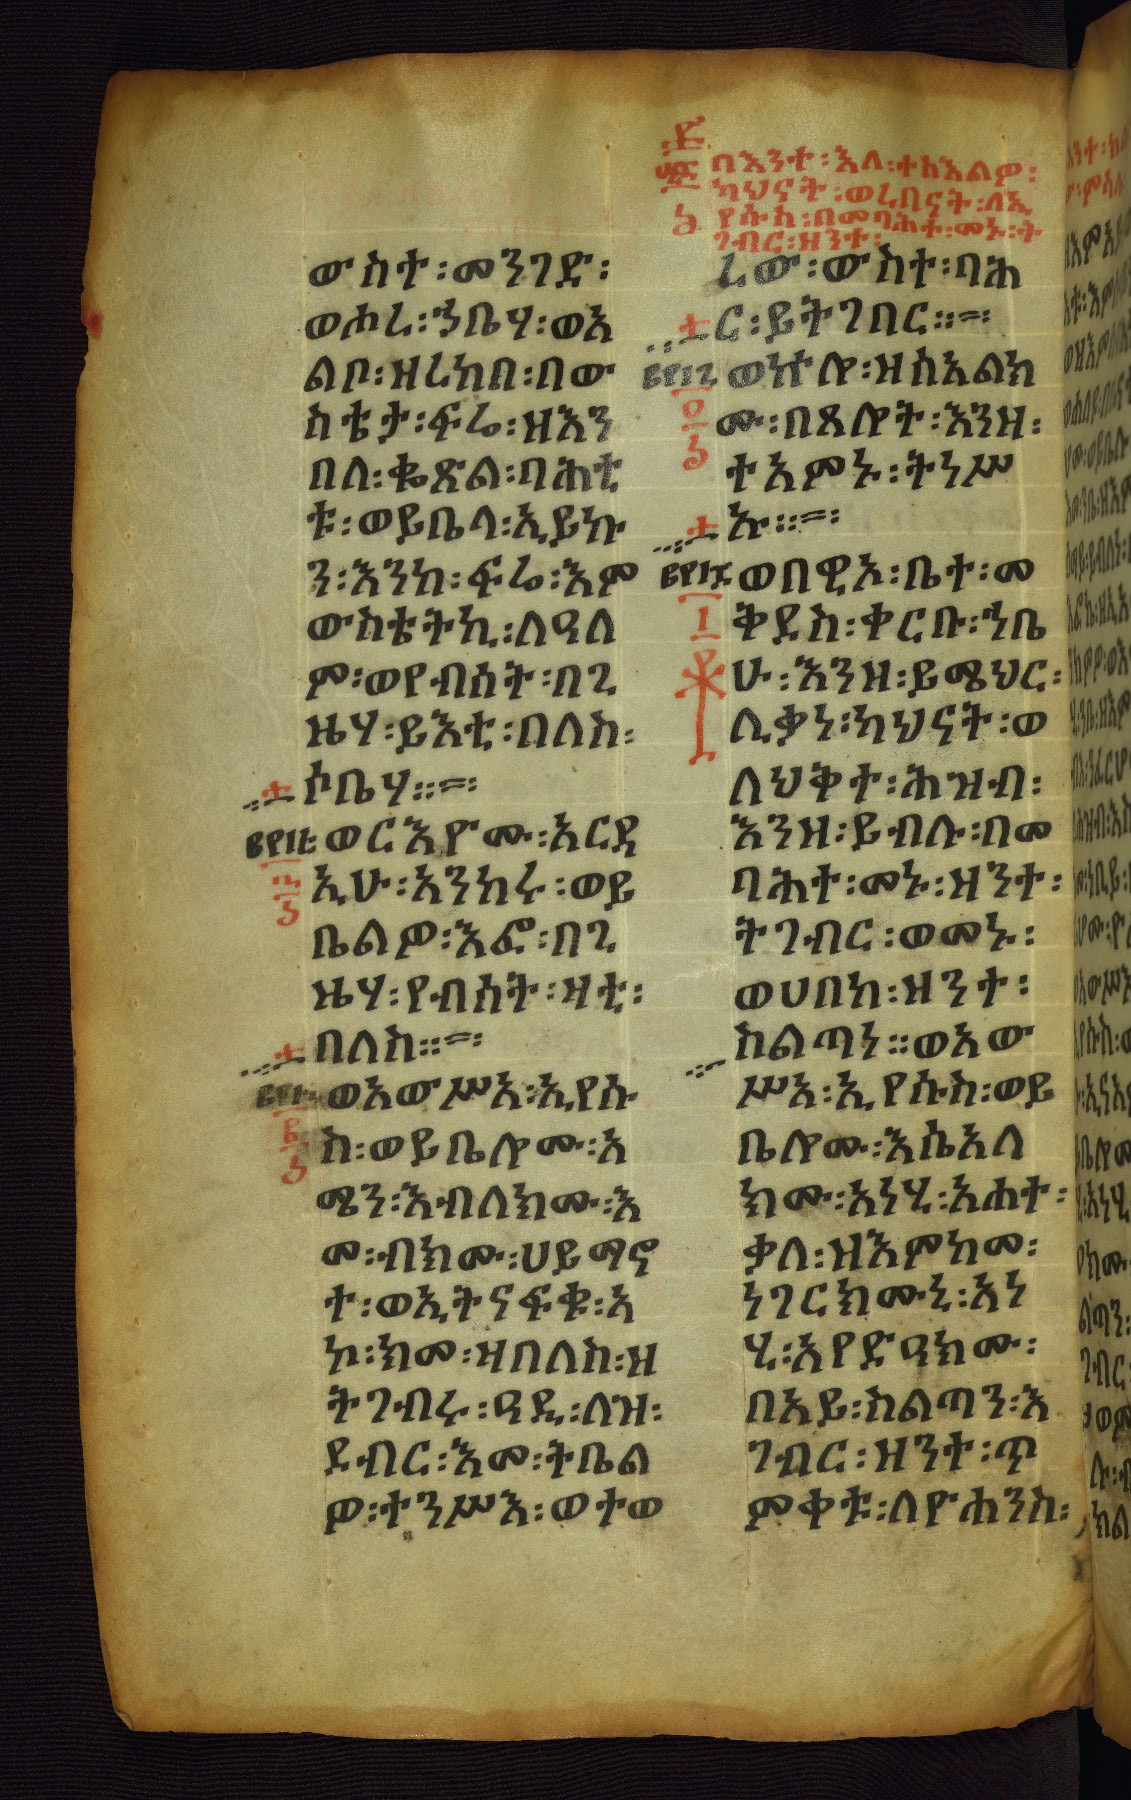 በእንተ፡እለ፡ተስእልዎ፡
ካህናት፡ወረበናት፡ለኢ
የሱስ፡በመባሕተ፡መኑ፡ት
ገብር፡ዝንተ፡
ውስተ፡መንገድ፡
ወሐረ፡ኀቤሃ፡ወአ
ልቦ፡ዝረከበ፡በው
ስቴታ፡ፍሬ፡ዘእን
በለ፡ቈጽል፡ባሕቲ
ቱ፡ወይቤላ፡ኢይኩ
ን፡እንከ፡ፍሬ፡እም
ውስቴትኪ፡ለዓለ
ም፡ወየብሰት፡በጊ
ዜሃ፡ይእቲ፡በለስ፡
ሶቤሃ።
ወርእዮሙ፡አርዳ
ኢሁ፡አንከሩ፡ወይ
ቤልዎ፡እፎ፡በጊ
ዜሃ፡የብሰት፡ዛቲ፡
በለስ።
ወአውሥአ፡ኢየሱ
ስ፡ወይቤሎሙ፡አ
ሜን፡እብለክሙ፡እ
መ፡ብክሙ፡ሀይማኖ
ተ፡ወኢትናፍቁ፡አ
ኮ፡ክመ፡ዛበለስ፡ዘ
ትገብሩ፡ዓዲ፡ለዝ፡
ደብር፡እመ፡ትቤል
ዎ፡ተንሥእ፡ወተወ
ረው፡ውስተ፡ባሕ
ር፡ይትገበር።
ወኵሎ፡ዘሰአልክ
ሙ፡በጸሎት፡እንዘ፡
ተአምኑ፡ትነሥ
ኡ።
ወበዊኦ፡ቤተ፡መ
ቅደስ፡ቀርቡ፡ኀቤ
ሁ፡እንዘ፡ይሜህር፡
ሊቃነ፡ካህናት፡ወ
ለህቅተ፡ሕዝብ፡
እንዘ፡ይብሉ፡በመ
ባሕተ፡መኑ፡ዝንተ፡
ትገብር፡ወመኑ፡
ወሀበከ፡ዝንተ፡
ስልጣነ።ወአው
ሥአ፡ኢየሱስ፡ወይ
ቤሎሙ፡እሴአለ
ክሙ፡አነሂ፡አሐተ፡
ቃለ፡ዘእምከመ፡
ነገርክሙኒ፡አነ
ሂ፡አየድዓክሙ፡
በአይ፡ስልጣን፡እ
ገብር፡ዝንተ፡ጥ
ምቀቱ፡ለዮሐንስ፡